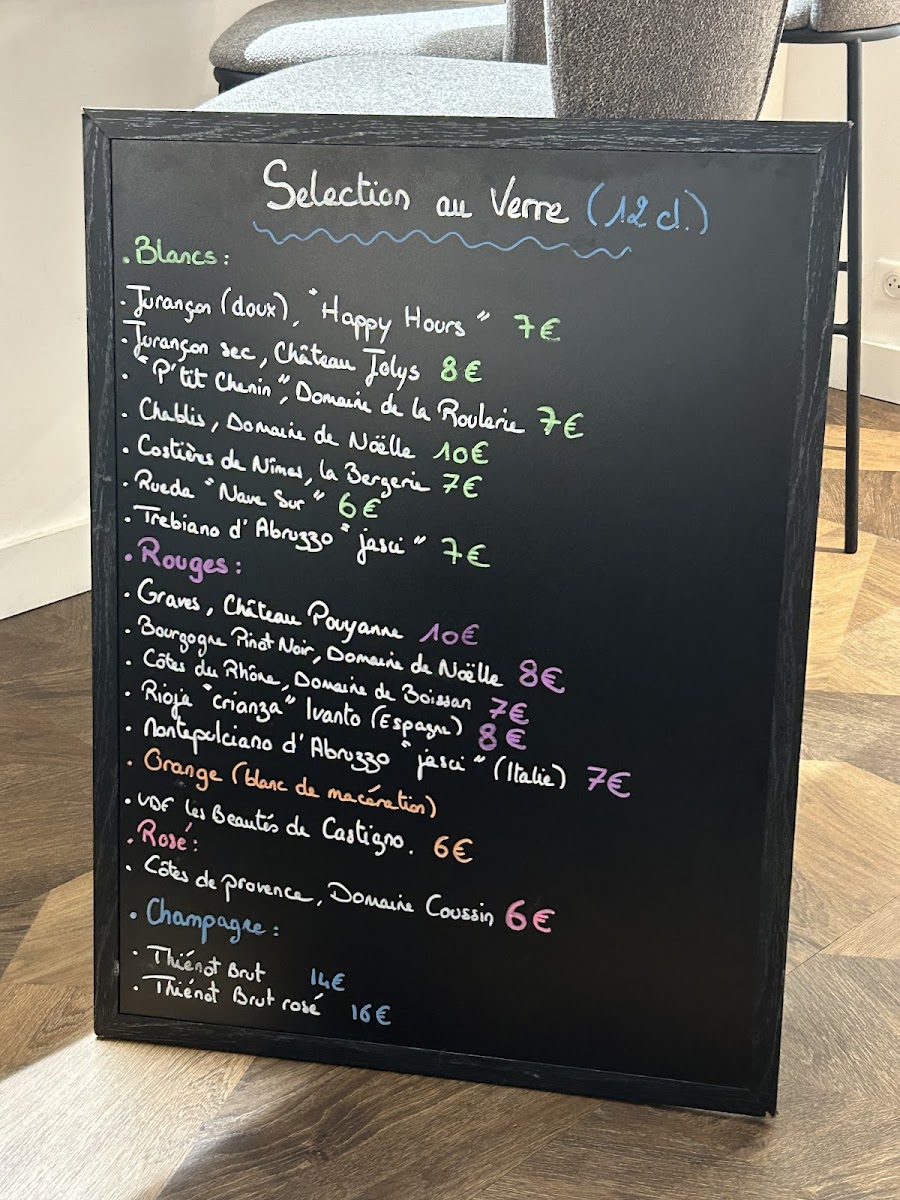 Selection au Verre (12 cl.)
. Blancs :
. Jurançon (doux), "Happy Hours" 7€
. Jurançon sec, Château Jolys 8€
. "P'tit Chenin", Domaine de la Roulerie 7€
. Chablis, Domaine de Noëlle 10€
. Costières de Nîmes, la Bergerie 7€
. Rueda "Nave Sur" 6€
. Trebiano d'Abruzzo "jasci" 7€
. Rouges :
. Graves, Château Pouyanne 10€
. Bourgogne Pinot Noir, Domaine de Noëlle 8€
. Côtes du Rhône, Domaine de Boissan 7€
. Rioja "crianza" Ivanto (Espagne) 8€
. Montepulciano d'Abruzzo "jasci" (Italie) 7€
. Orange (blanc de macération)
. VDF les Beautés de Castigno. 6€
. Rosé :
. Côtes de provence, Domaine Coussin 6€
. Champagne :
. Thiénot Brut 14€
. Thiénot Brut rosé 16€